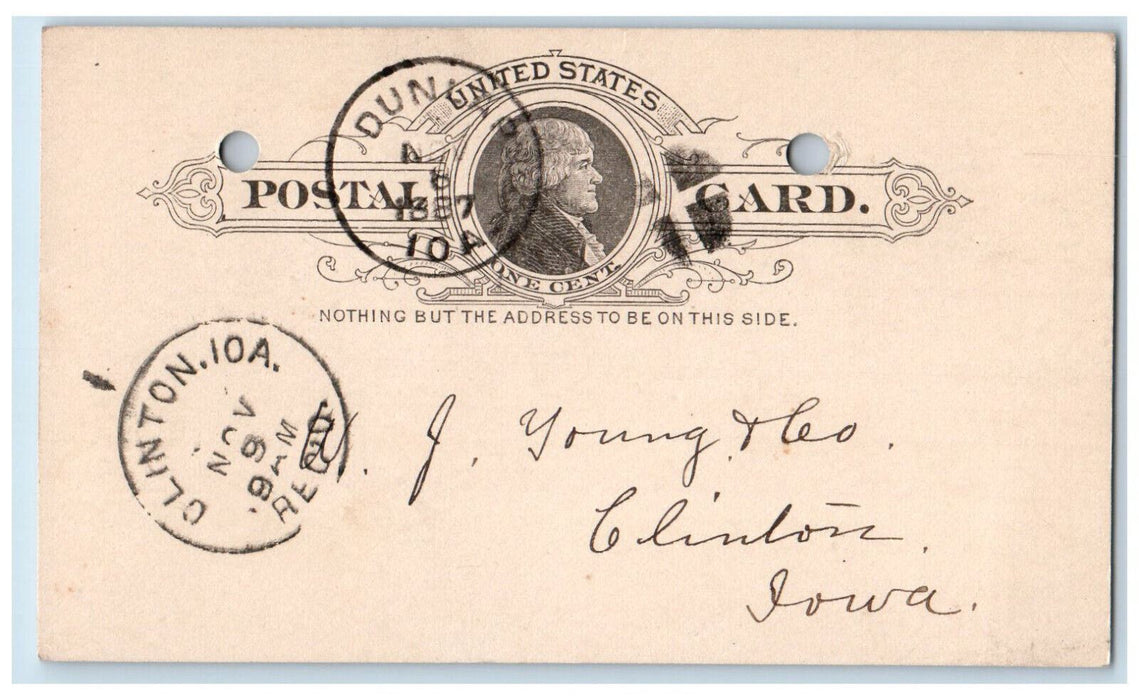 UNITED STATES
POSTAL CARD.
ONE CENT.
NOTHING BUT THE ADDRESS TO BE ON THIS SIDE.
1887
IOA
CLINTON. IOA.
NOV
9
9 AM
REC'D
J. Young & Co.
Clinton.
Iowa.